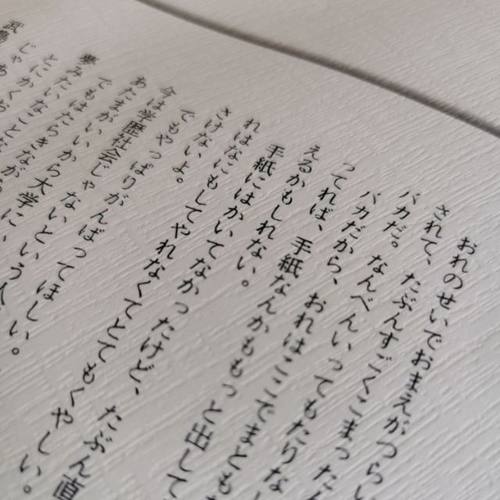 おれのせいでおまえがつらい
されて、たぶんすごくこまった
バカだ。なんべんいってもたりな
バカだから、おれはここでまとも
ってれば、手紙なんかももっと出して
えるかもしれない。
手紙にはかいてなかったけど、たぶん直
れはなにもしてやれなくてとてもくやしい。
さけないよ。
でもやっぱりがんばってほしい。
今は学歴社会じゃないという人
あたまがいいから大学に
でもはたらきながら
夢みたいな